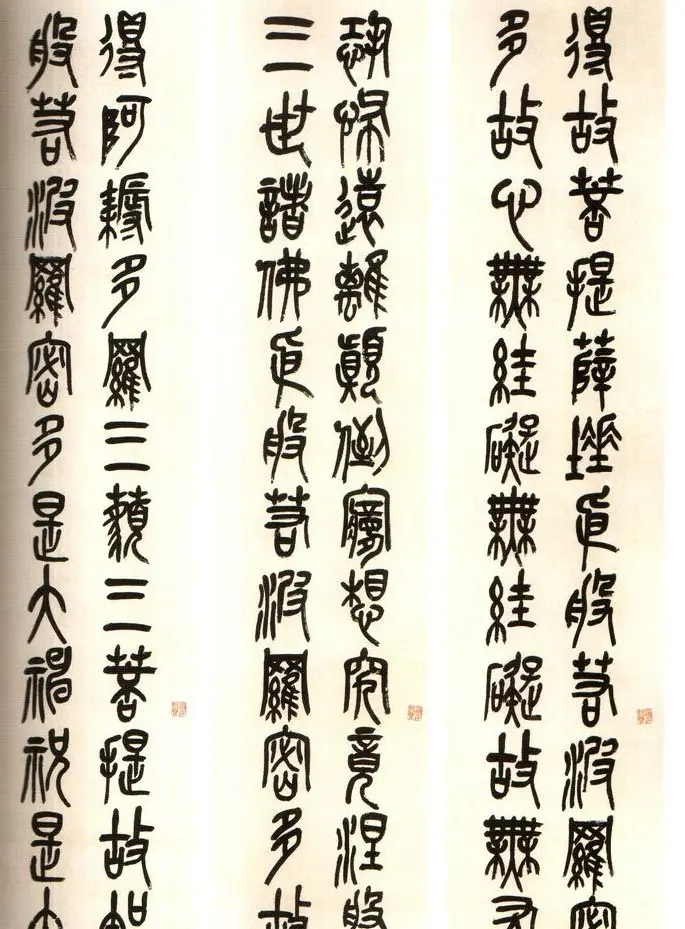 得故菩提薩埵以般若波羅密
多故心無絓礙無絓礙故無有
恐怖遠離顛倒夢想究竟涅槃
三世諸佛以般若波羅密多故
得阿耨多羅三藐三菩提故知
般若波羅密多是大神祝是大